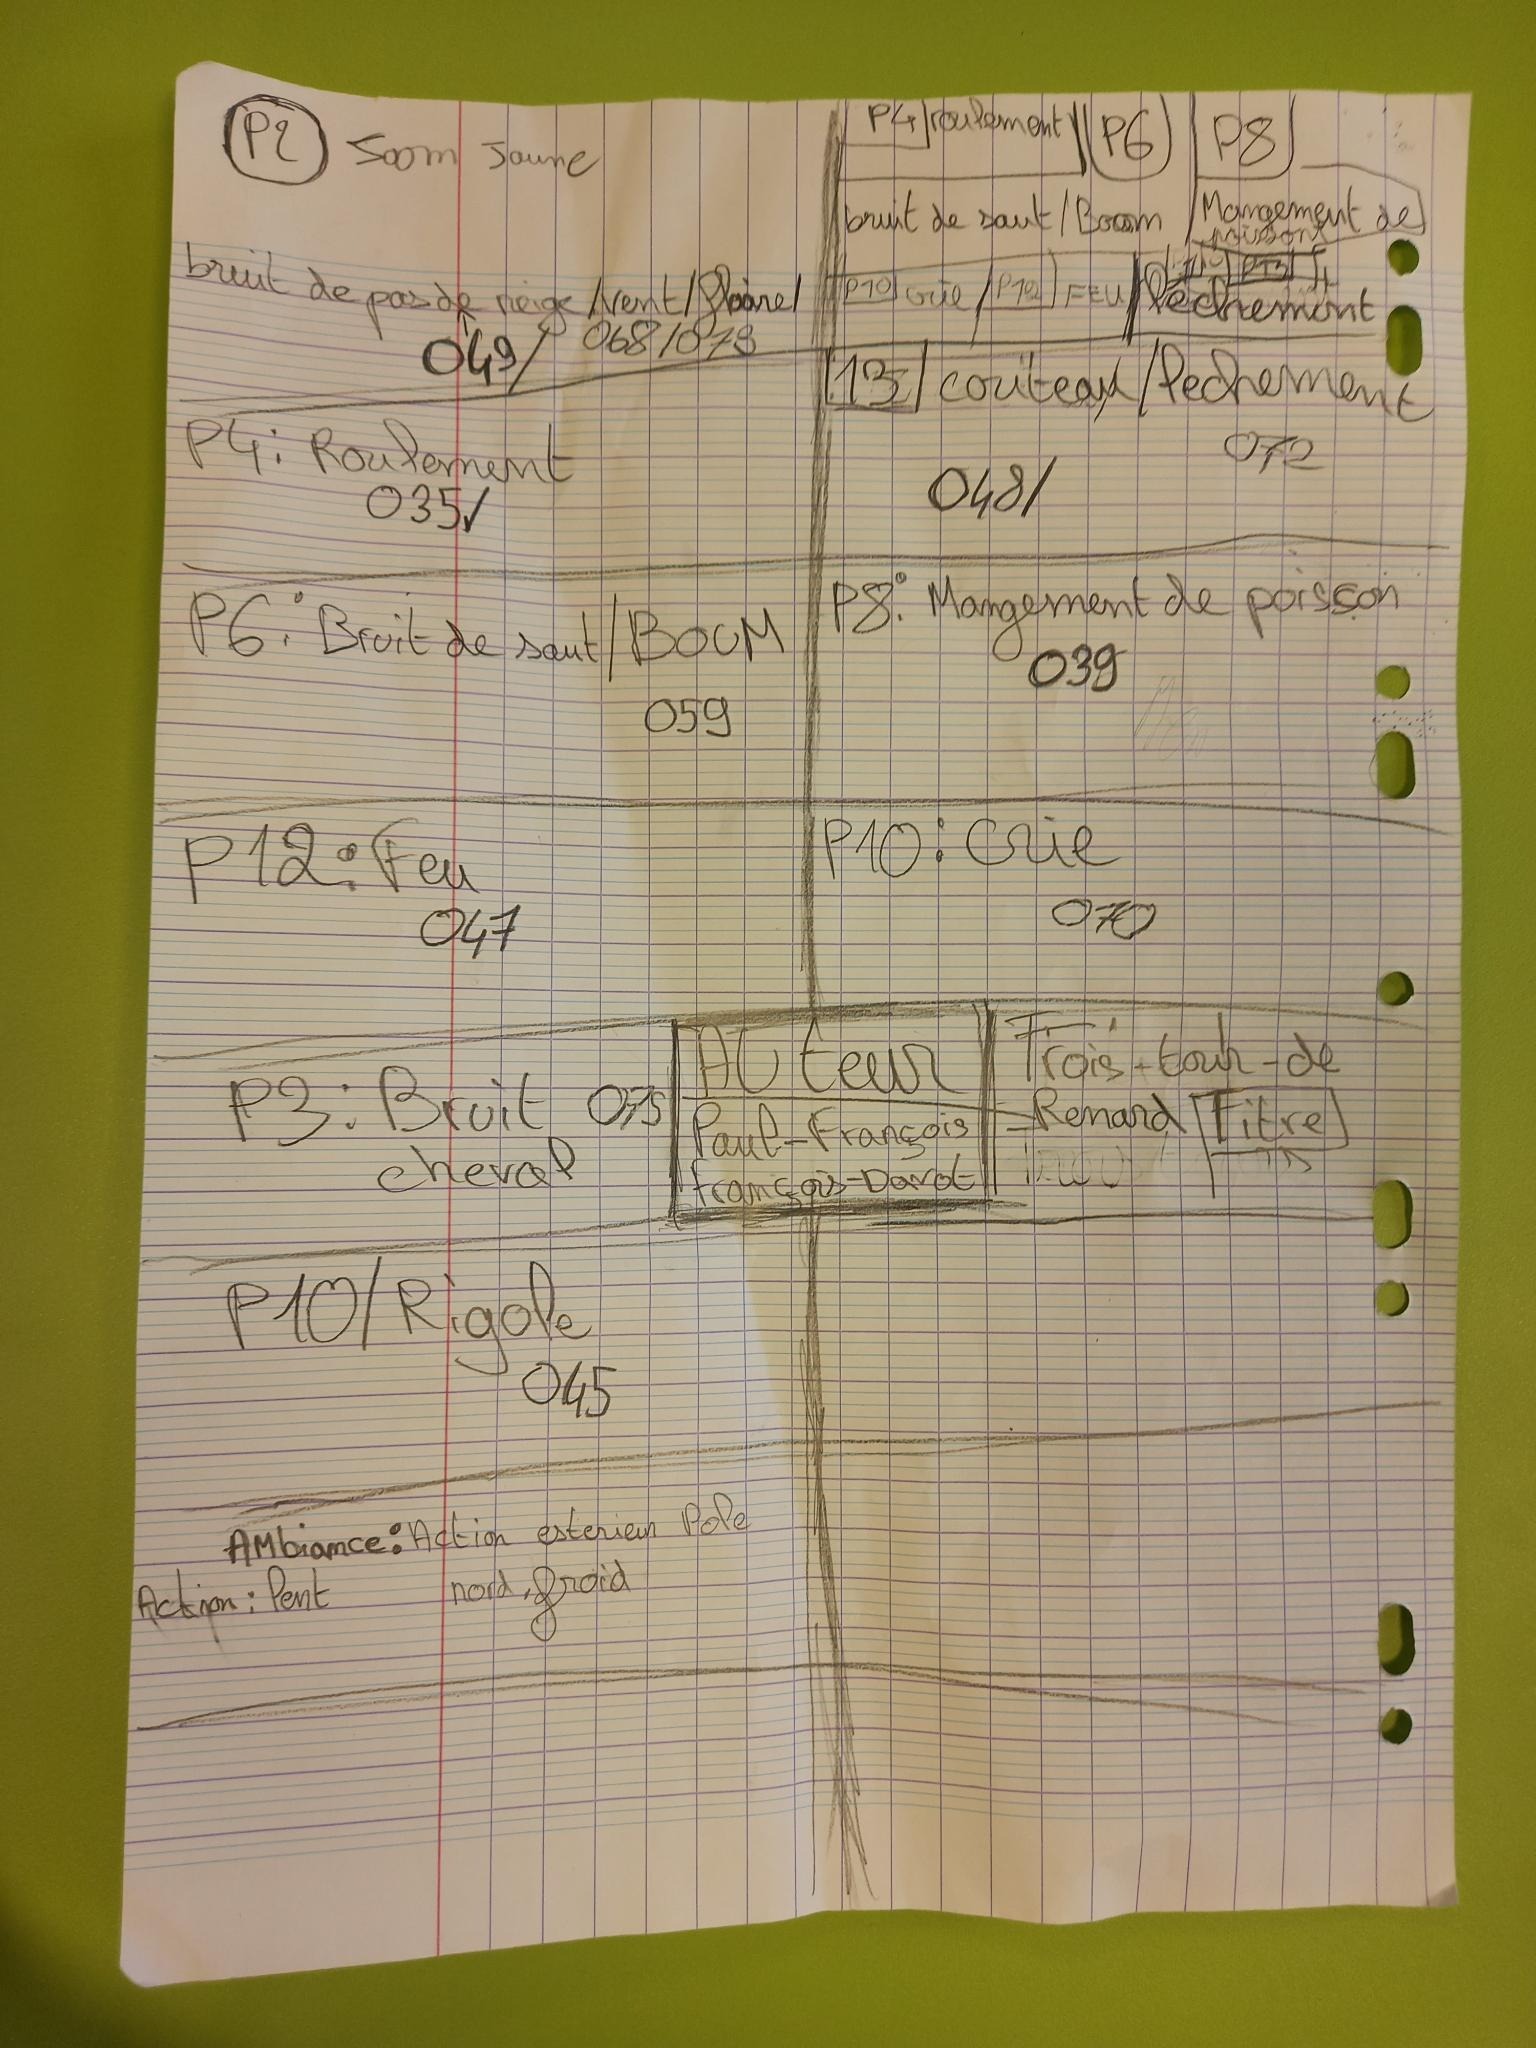 P2 Soom Jaune
bruit de pas de neige/vent/
049/ 068/079
P4: Roulement
035
P6: Bruit de saut/BOUM
059
P12: Feu
047
P3: Bruit 075
cheval
P10/Rigole
045
AMbiance: Action esterieu Pole
nord, froid
Action: Pent
P4 roulement P6 P8
bruit de saut/Booom Mangement de
poisson
P10 crie/P12 FEU/Pechement
13 couteau/Pechement
072
048/
P8: Mangement de poisson
039
P10: Crie
070
AUteur
Paul-François
françois-Darot
Trois-tour-de
-Renard Titre